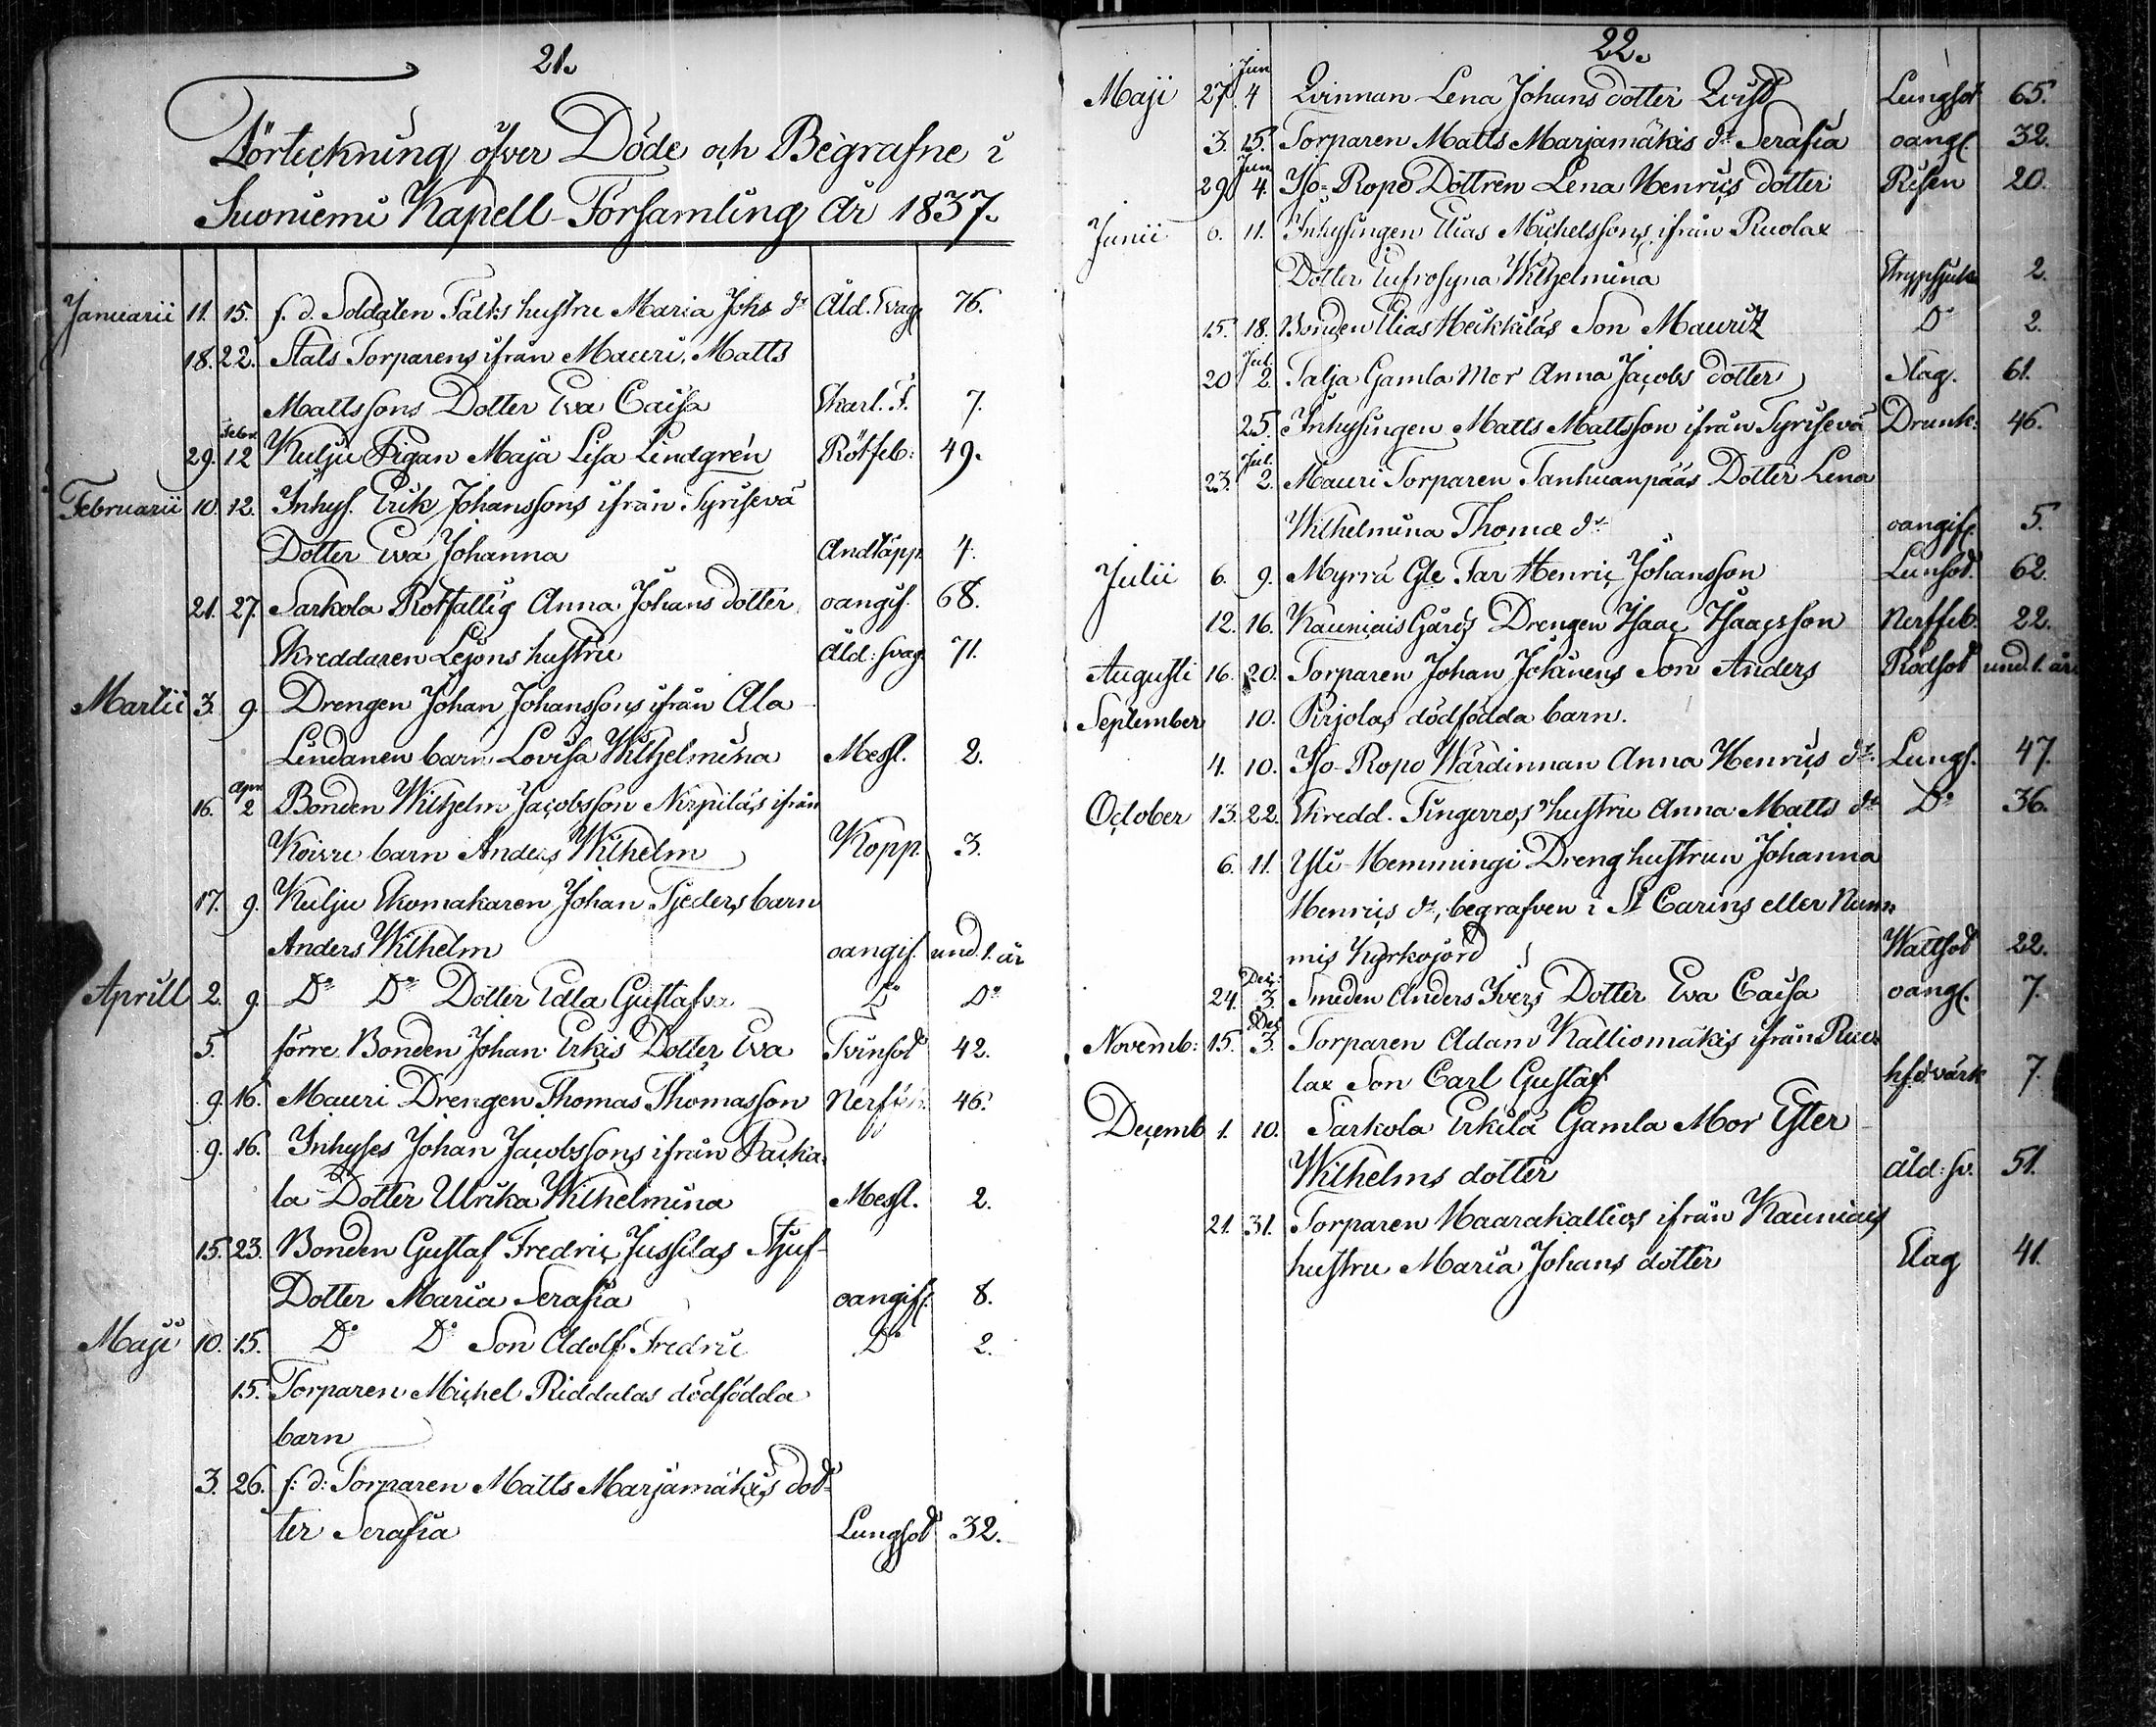 21.
Förteckning öfver Döde och Begrafne i
Suoniemi Kapell-Församling År 1837.
Januarii 11. 15. f. d. Soldaten Fälks hustru Maria Johs dr Åld. svag. 76.
18. 22. Stals Torparens ifrån Mauri, Matts
Mattssons Dotter Eva Caisa Skarl. F. 7.
29. Febr. 12 Kulju Pigan Maja Lisa Lindgrén Rötfeb: 49.
Februarii 10. 12. Inhys. Erik Johanssons ifrån Tyrisevä
Dotter Eva Johanna Andtäpp. 4.
21. 27. Sarkola Rotfallig Anna Johans dotter oangif. 68.
Skreddaren Lejons hustru Åld: svag. 71.
Martii 3. 9. Drengen Johan Johanssons ifrån Ala
Lindanen barn Lovisa Wilhelmina Messl. 2.
16. Apr. 2 Bonden Wilhelm Jacobsson Nirpiläs ifrån
Koivu barn Anders Wilhelm Kopp. 3.
17. 9. Kulju Skomakaren Johan Tjeders barn
Anders Wilhelm oangif. und. 1. år
Aprill 2. 9. Do Do Dotter Edla Gustafva Do Do
5. förre Bonden Johan Erkis Dotter Eva Tvinsot 42.
9. 16. Mauri Drengen Thomas Thomasson Nerffeb. 46.
9. 16. Inhyses Johan Jacobssons ifrån Packa-
la Dotter Ulrika Wilhelmina Messl. 2.
15. 23. Bonden Gustaf Fredric Jussilas Stjuf-
Dotter Maria Serafia oangif. 8.
Maji 10. 15. Do Do Son Adolf Fredric Do 2.
15. Torparen Michel Riddalas dödfödda
barn
3. 26. f: d: Torparen Matts Marjamäkis dot-
ter Serafia Lungsot 32.
22.
Maji 27. Jun 4 Qvinnan Lena Johans dotter Qvist Lungsot 65.
3. 15. Torparen Matts Marjamäkis dr Serafia oangf. 32.
29. Jun 4. Iso-Ropo Dottren Lena Henrics dotter Risen 20.
Junii 6. 11. Inhysingen Elias Michelssons ifrån Ruolax
Dotter Eufrosyna Wilhelmina Strypsjuka 2.
15. 18. Bonden Elias Heikkiläs Son Mauritz Do 2.
20 Jul. 2. Talja Gamla Mor Anna Jacobs dotter Slag. 61.
25. Inhysingen Matts Mattsson ifrån Tyrisevä Drunk: 46.
23. Jul. 2. Mauri Torparen Tanhuanpääs Dotter Lena
Wilhelmina Thomæ dr oangif. 5.
Julii 6. 9. Myrrä Gle Far Henric Johansson Lunsot. 62.
12. 16. Kauniais Gårds Drengen Isaac Isaacsson Nerffeb. 22.
Augusti 16. 20. Torparen Johan Johanens Son Anders Rödsot und. 1. år
September 10. Pirjolas dödfödda barn.
4. 10. Iso-Ropo Wärdinnan Anna Henrics dr. Lungs. 47.
October 13. 22. Skredd. Fingerros hustru Anna Matts dr Do 36.
6. 11. Yli-Hemmingi Dreng hustrun Johanna
Henrics dr, begrafven i St Carins eller Num
mis Kyrkojord Wattsot 22.
24. Dec: 3. Smeden Anders Ivers Dotter Eva Caisa oangf. 7.
Novemb: 15. Dec 3. Torparen Adam Kalliomäkis ifrån Ruo-
lax Son Carl Gustaf hfdvärk 7.
Decemb 1. 10. Sarkola Erkilä Gamla Mor Ester
Wilhelms dotter åld: sv. 51.
21. 31. Torparen Haarakallios ifrån Kauniais
hustru Maria Johans dotter Slag 41.